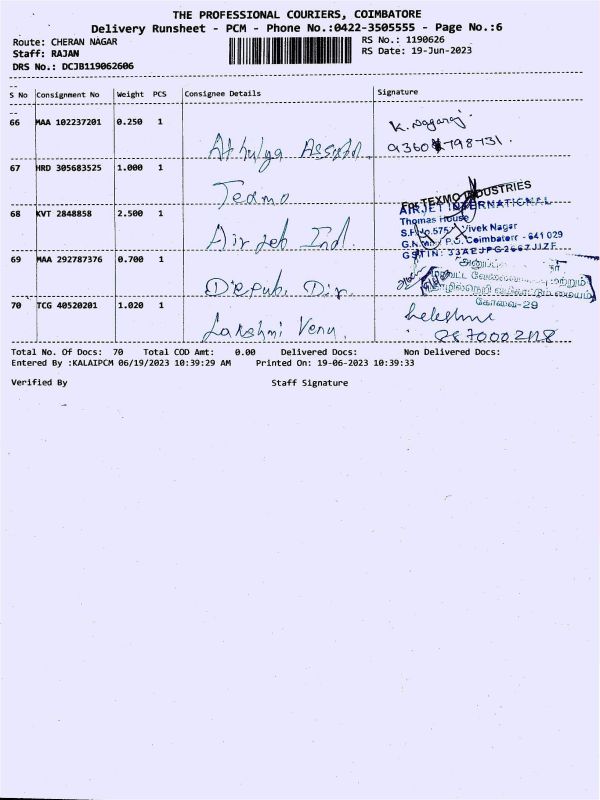 THE PROFESSIONAL COURIERS, COIMBATORE
Delivery Runsheet - PCM - Phone No.:0422-3505555 - Page No.:6
Route: CHERAN NAGAR
RS No.: 1190626
Staff: RAJAN
RS Date: 19-Jun-2023
DRS No.: DCJB119062606
S No Consignment No Weight PCS Consignee Details Signature
66 MAA 102237201 0.250 1
K. Nagaraj
Athulya Assistn.
67 HRD 305683525 1.000 1
Texmo
For TEXMO INDUSTRIES
68 KVT 2848858 2.500 1
AIRJET INTERNATIONAL
Thomas House
Vivek Nagar
Air Jet Ind.
Coimbatore - 641 029
69 MAA 292787376 0.700 1
GSTIN:
Deput. Dir
மற்றும்
வழிகாட்டும் மையம்
கோவை-29
70 TCG 40520201 1.020 1
Lakshmi Venu
Total No. Of Docs: 70 Total COD Amt: 0.00 Delivered Docs: Non Delivered Docs:
Entered By :KALAIPCM 06/19/2023 10:39:29 AM Printed On: 19-06-2023 10:39:33
Verified By Staff Signature